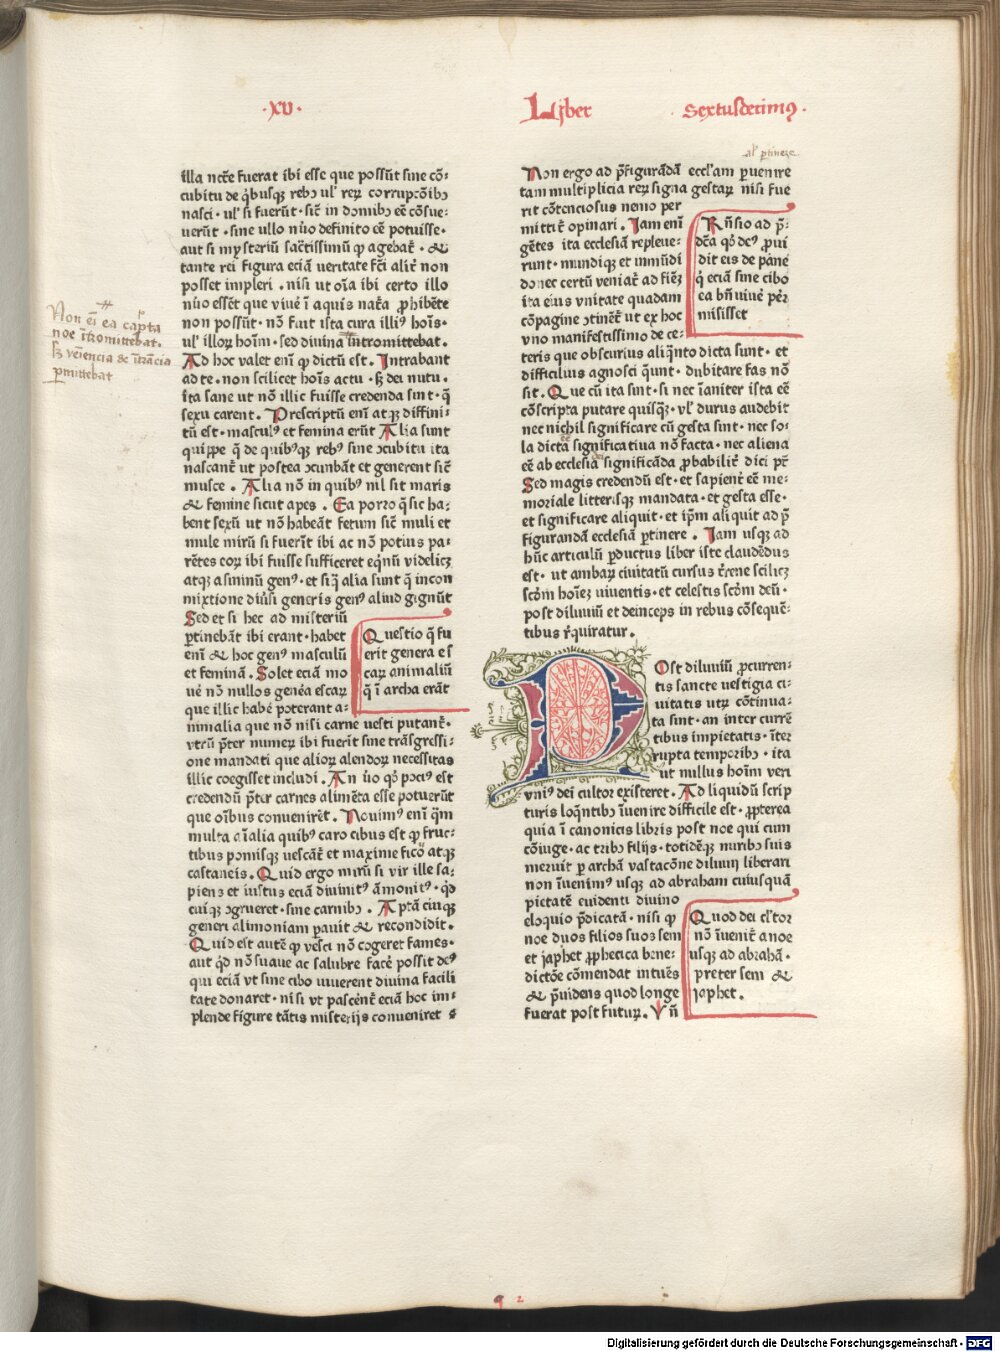 ·xv·
Liber Sextusdecimꝰ·
al' ptinere
illa nctē fuerat ibi esse que possūt sine cō⸗
cubitu de qͥbusqꝫ rebꝫ ul' reꝝ corrupcōibꝫ
nasci· ul' si fuerūt· sic̄ in domibꝫ eē cōsue⸗
uerūt· sine ullo nūo definito eē potuisse·
aut si mysteriū sac̄tissimū qꝫ agebat̄· &
tante rei figura eciā ueritate fc̄i alit̄ non
posset impleri· nisi ut oīa ibi certo illo
nūo essēt que viuē ī aquis nat̄a ꝓhibēte
non possūt· nō fuit ista cura illiꝰ hoīs·
ul' illoꝝ hoīm· sed diuina ītromittebat·
Ad hoc valet enī ꝙ dictū est· Intrabant
ad te· non scilicet hoīs actu· sꝫ dei nutu·
ita sane ut nō illic fuisse credenda sint· q̄
sexu carent· Prescriptū enī atqꝫ diffini⸗
tū est· masculꝰ et femina erūt Alia sunt
quippe q̄ de quibꝰqꝫ rebꝰ sine ɔcubitu ita
nascant̄ ut postea ɔcunbāt et generent sic̄
musce· Alia nō in quibꝰ nil sit maris
& femine sicut apes· Ea porro q̄ sic ha⸗
bent sexū ut nō habeāt fetum sic̄ muli et
mule mirū si fuerīt ibi ac nō potius pa⸗
rētes eoꝝ ibi fuisse sufficeret eqͥnū videlicꝫ
atqꝫ asininū genꝰ· et si q̄ alia sunt q̄ incon
mixtione diūsi generis genꝰ aliud gignūt
Sed et si hec ad misteriū
ꝑtinebāt ibi erant· habet
enī & hoc genꝰ masculū
et feminā· Solet eciā mo
uē nō nullos genēa escaꝝ
que illic habē poterant a⸗
nimalia que nō nisi carne vesci putant̄·
vtrū p̄ter numeꝝ ibi fuerīt sine trāsgressi⸗
one mandati que alioꝝ alendoꝝ necessitas
illic coegisset includi· An ūo qͦ pociꝰ est
credendū p̄ter carnes alimēta esse potuerūt
que oībus conueniret̄· Nouimꝰ enī qͣm
multa aīalia quibꝰ caro cibus est ꝙ fruc⸗
tibus pomisqꝫ uescāt̄ et maxime fico atqꝫ
castaneis· Quid ergo mirū si vir ille sa⸗
piens et iustus eciā diuinitꝰ āmonitꝰ· qͥd
cuiqꝫ ɔgrueret· sine carnibꝫ· Aptā cuiqꝫ
generi alimoniam ꝑauit & recondidit·
Quid est autē ꝙ vesci nō cogeret fames·
aut qͥd nō suaue ac salubre facē possit deꝰ
qui eciā vt sine cibo viuerent diuina facili
tate donaret· nisi vt pascent̄ eciā hoc im⸗
plende figure tātis misterijs conueniret
Questio q̄ fu
erit genera es
caꝝ animaliū
q̄ ī archa erāt
Non eī ea capta
noe ītromittebat·
sꝫ veiencia &
ꝑmittebat
Non ergo ad p̄figurādā eccl'am ꝑuenire
tam multiplicia reꝝ signa gestaꝝ nisi fue
rit cōtenciosus nemo per
mittit̄ opinari· Jam enī
gētes ita ecclesiā repleue⸗
runt· mundiqꝫ et inmūdi
donec certū veniat̄ ad finē
ita eius vnitate quadam
cōpagine ɔtinēt̄ ut ex hoc
vno manifestissimo de ce⸗
teris que obscurius aliqͣnto dicta sunt· et
difficilius agnosci q̄unt· dubitare fas nō
sit· Que cū ita sint· si nec īaniter ista eē
cōscripta putare quisqꝫ· vl' durus audebit
nec nichil significare cū gesta sint· nec so⸗
la dicta significatiua nō facta· nec aliena
eē ab ecclesia significāda ꝓbabilit̄ dici pt̄
Sed magis credendū est· et sapient̄ eē me⸗
moriale litterisqꝫ mandata· et gesta esse·
et significare aliquit· et ip̄m aliquit ad p̄
figurandā ecclesiā ꝑtinere· Jam usqꝫ ad
hūc articulū ꝑductus liber iste claudēdus
est· ut ambaꝝ ciuitatū cursus t̄rene scilicꝫ
scd̄m hoīeꝫ viuentis· et celestis scd̄m deū·
post diluuiū et deinceps in rebus cōsequē⸗
tibus r̄quiratur·
Rn̄sio ad p̄⸗
dc̄a qͦ deꝰ ꝓui
dit eis de pane
q̄ eciā sine cibo
ea bn̄ viuē per
misisset
POst diluuiū ꝓcurren⸗
tis sancte uestigia ci⸗
uitatis utꝝ cōtinua⸗
ta sint· an inter currē
tibus impietatis· īter
rupta temporibꝫ· ita
ut nullus hoīm veri
vniꝰ dei cultor existeret· Ad liquidū scrip
turis loqͣntibꝫ īuenire difficile est· ꝓpterea
quia ī canonicis libris post noe qui cum
cōiuge· ac tribꝫ filijs· totidēqꝫ nuribꝫ suis
meruit ꝑ archā vastacōne diluuij liberari
non īuenimꝰ usqꝫ ad abraham cuiusquā
pietatē euidenti diuino
eloquio p̄dicatā· nisi ꝙ
noe duos filios suos sem
et japhet ꝓphetica bene⸗
dictōe cōmendat intuēs
& p̄uidens quod longe
fuerat post futuꝝ· Vn̄
Quod dei cl'tor
nō īuenit̄ a noe
usqꝫ ad abrahā·
preter sem &
japhet·
Digitalisierung gefördert durch die Deutsche Forschungsgemeinschaft - DFG